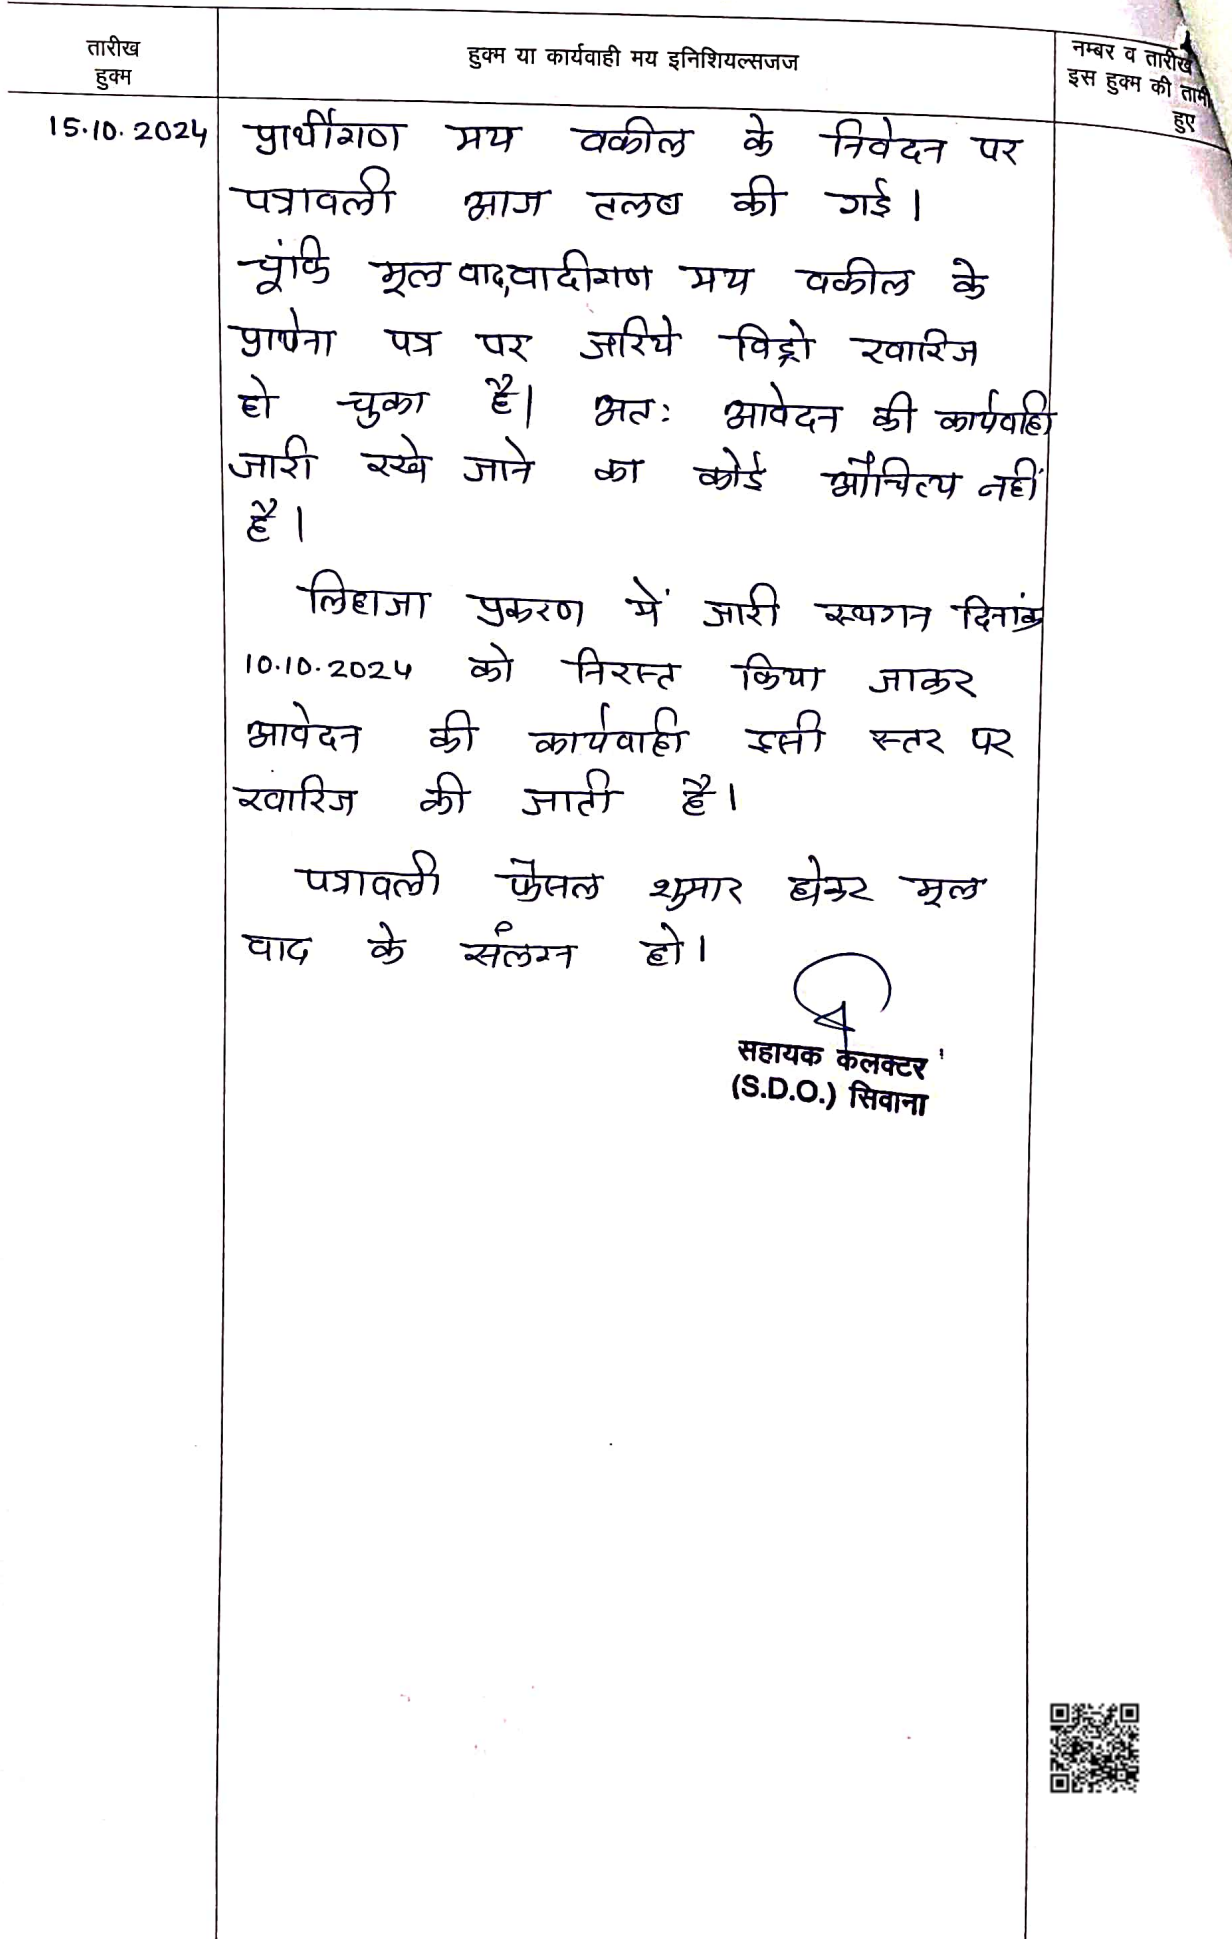 तारीख
हुक्म
हुक्म या कार्यवाही मय इनिशियल्सजज
नम्बर व तारीख
इस हुक्म की तामी
हुए
15.10.2024 प्रार्थीगण मय वकील के निवेदन पर
पत्रावली आज तलब की गई।
चूंकि मूल वाद,वादीगण मय वकील के
प्रार्थना पत्र पर जरिये विड्रो खारिज
हो चुका है। अतः आवेदन की कार्यवाही
जारी रखे जाने का कोई औचित्य नहीं
है।
लिहाजा प्रकरण में जारी स्थगन दिनांक
10.10.2024 को निरस्त किया जाकर
आवेदन की कार्यवाही इसी स्तर पर
खारिज की जाती है।
पत्रावली फैसल शुमार होकर मूल
वाद के संलग्न हो।
सहायक कलक्टर
(S.D.O.) सिवाना